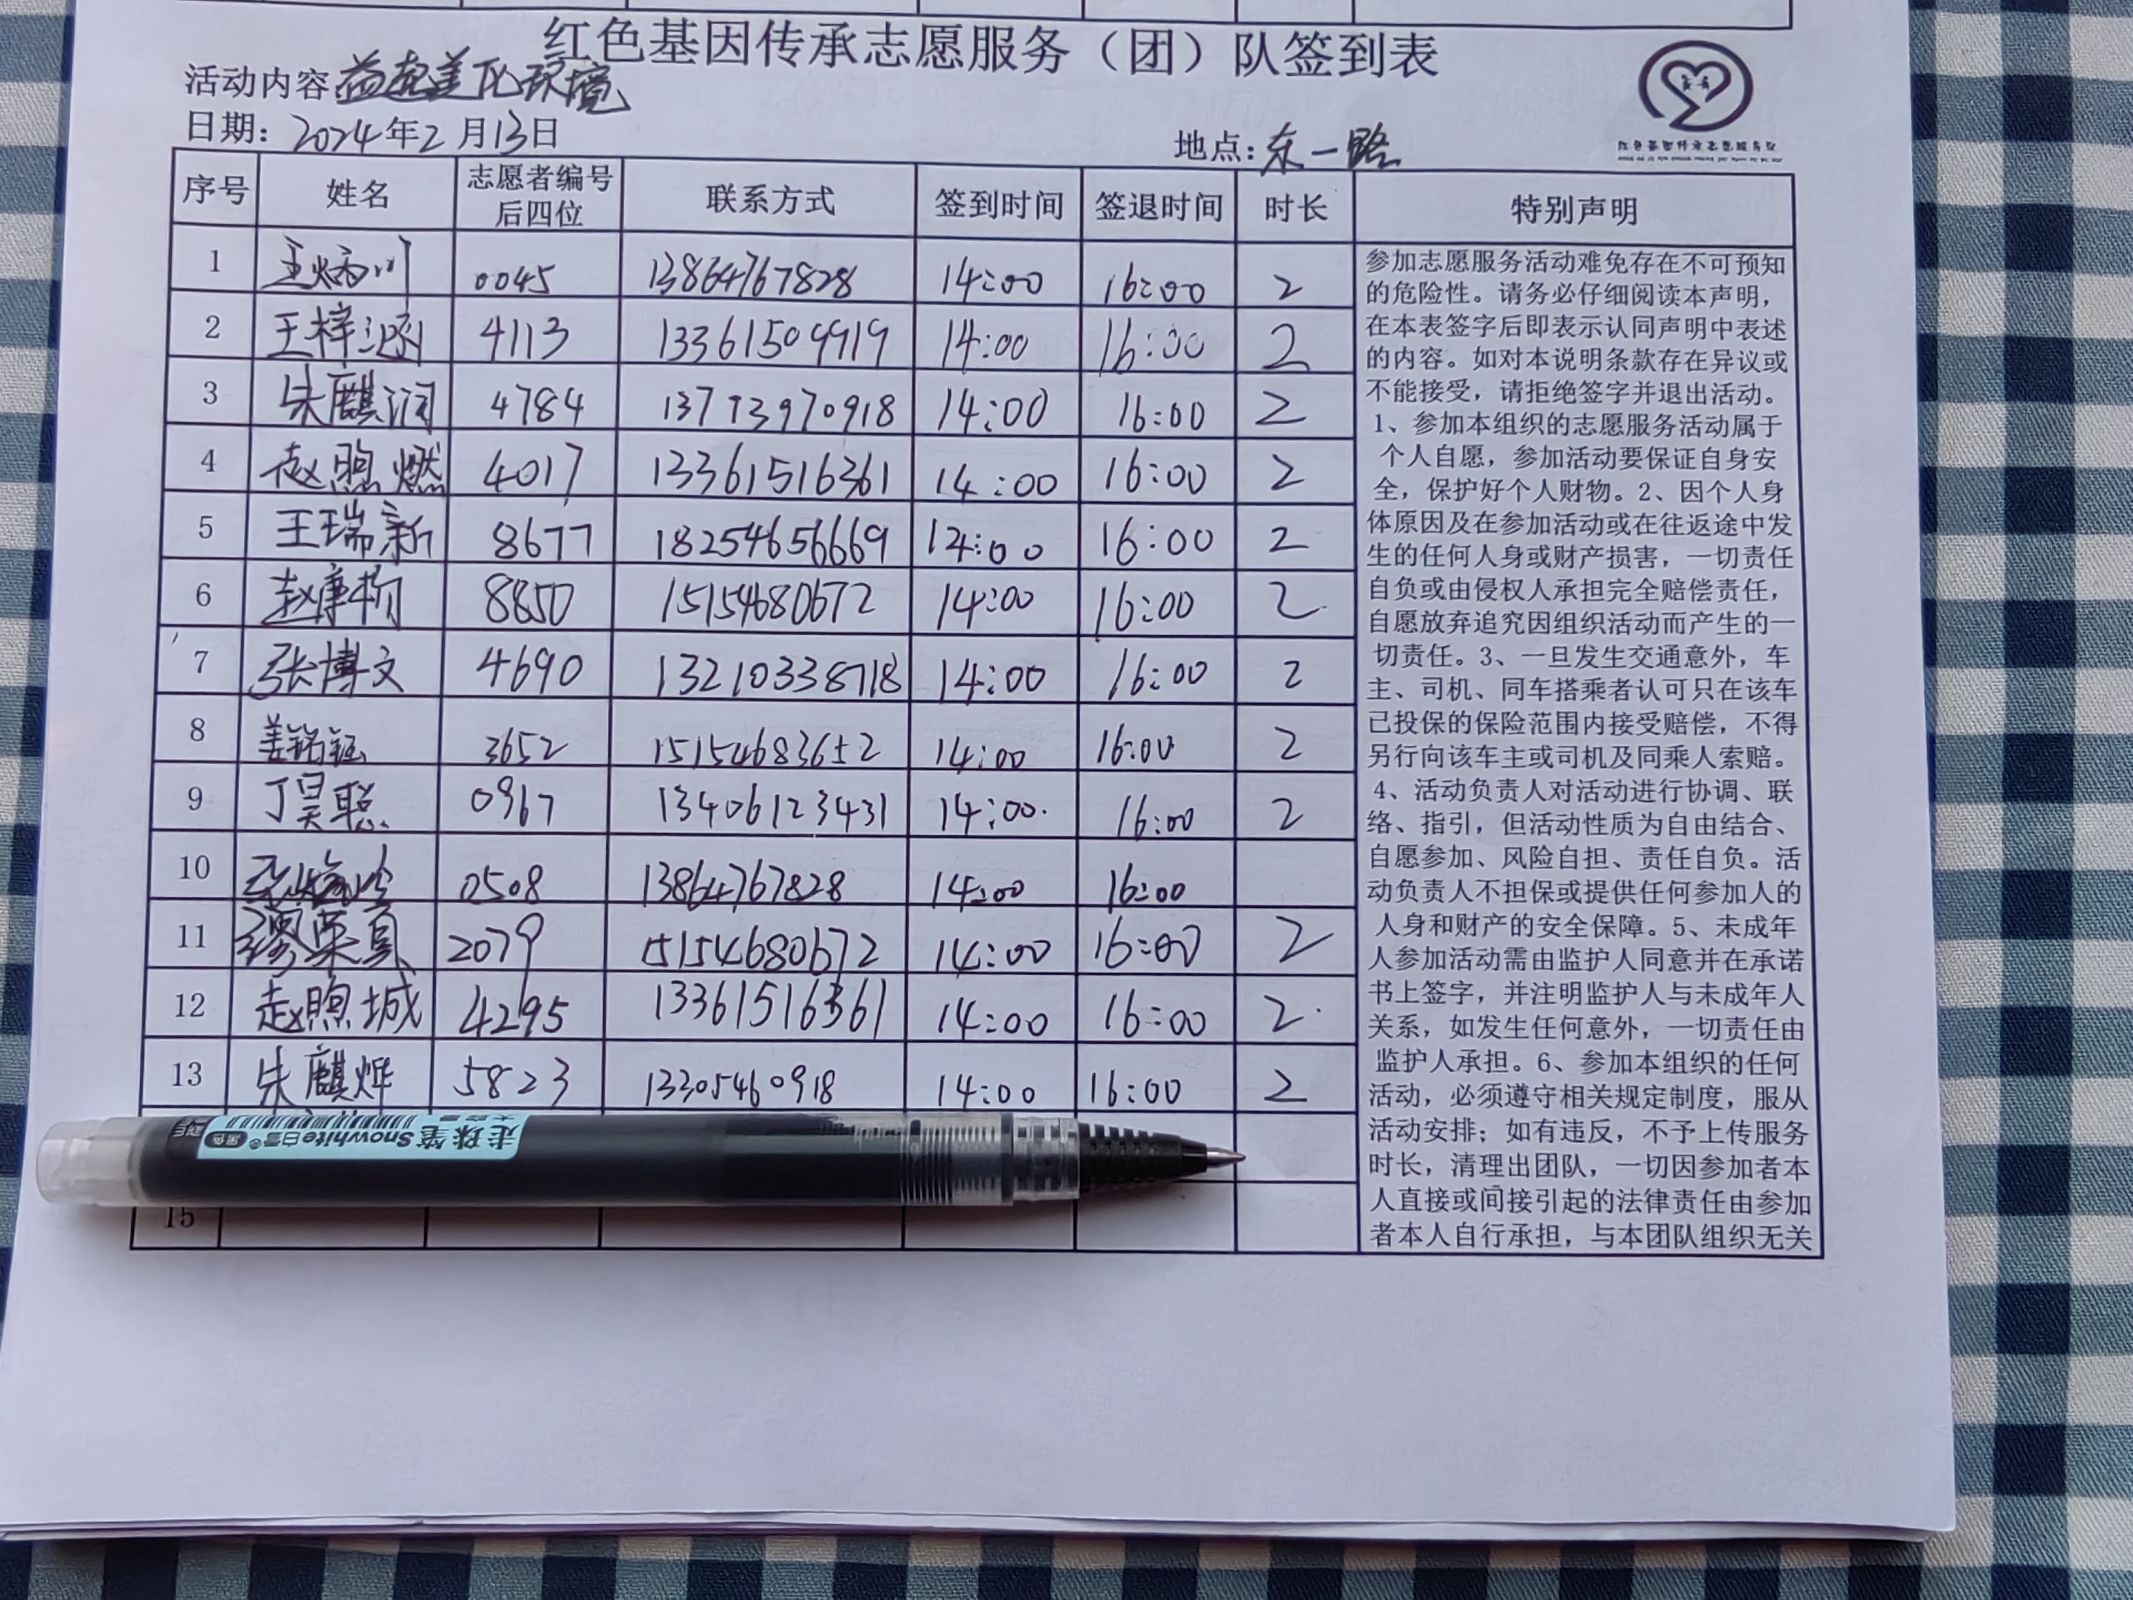 红色基因传承志愿服务（团）队签到表
活动内容 益起美化环境
日期：2024年2月13日
地点：东一路
序号 姓名 志愿者编号后四位 联系方式 签到时间 签退时间 时长 特别声明
1 王炳川 0045 13864767828 14:00 16:00 2
2 王梓涵 4113 13361509919 14:00 16:00 2
3 朱麒润 4784 13793970918 14:00 16:00 2
4 赵煦燃 4017 13361516361 14:00 16:00 2
5 王瑞新 8677 18254656669 14:00 16:00 2
6 赵康 8850 15154680672 14:00 16:00 2
7 张博文 4690 13210338718 14:00 16:00 2
8 姜铭钰 3652 15154683652 14:00 16:00 2
9 丁昊聪 0967 13406123431 14:00 16:00 2
10 0508 13864767828 14:00 16:00
11 2079 15154680672 14:00 16:00 2
12 赵煦城 4295 13361516361 14:00 16:00 2
13 朱麒烨 5823 13305460918 14:00 16:00 2
15
参加志愿服务活动难免存在不可预知
的危险性。请务必仔细阅读本声明，
在本表签字后即表示认同声明中表述
的内容。如对本说明条款存在异议或
不能接受，请拒绝签字并退出活动。
1、参加本组织的志愿服务活动属于
个人自愿，参加活动要保证自身安
全，保护好个人财物。2、因个人身
体原因及在参加活动或在往返途中发
生的任何人身或财产损害，一切责任
自负或由侵权人承担完全赔偿责任，
自愿放弃追究因组织活动而产生的一
切责任。3、一旦发生交通意外，车
主、司机、同车搭乘者认可只在该车
已投保的保险范围内接受赔偿，不得
另行向该车主或司机及同乘人索赔。
4、活动负责人对活动进行协调、联
络、指引，但活动性质为自由结合、
自愿参加、风险自担、责任自负。活
动负责人不担保或提供任何参加人的
人身和财产的安全保障。5、未成年
人参加活动需由监护人同意并在承诺
书上签字，并注明监护人与未成年人
关系，如发生任何意外，一切责任由
监护人承担。6、参加本组织的任何
活动，必须遵守相关规定制度，服从
活动安排；如有违反，不予上传服务
时长，清理出团队，一切因参加者本
人直接或间接引起的法律责任由参加
者本人自行承担，与本团队组织无关
走珠笔 Snowhite白雪®